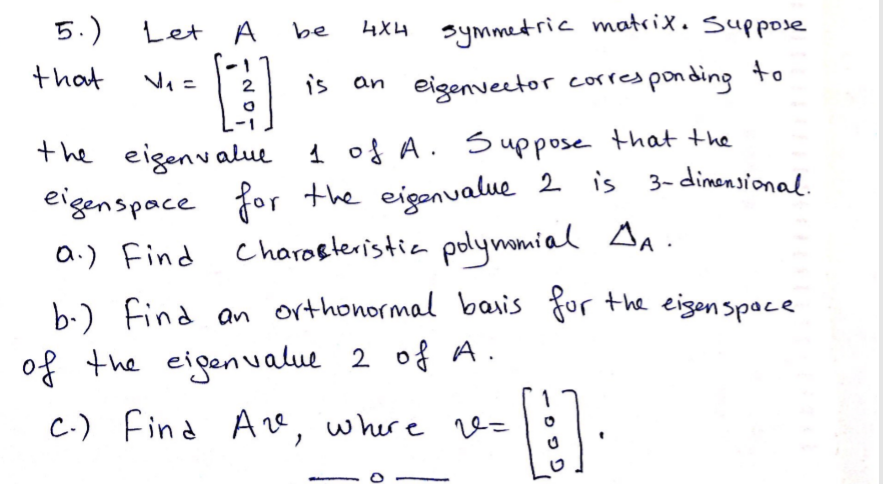 5.) Let A be 4x4 symmetric matrix. Suppose
that v₁ = [-1 2 0 -1] is an eigenvector corresponding to
the eigenvalue 1 of A. Suppose that the
eigenspace for the eigenvalue 2 is 3-dimensional.
a.) Find Characteristic polynomial Δ_A.
b.) Find an orthonormal basis for the eigenspace
of the eigenvalue 2 of A.
c.) Find Av, where v= [1 0 0 0].
— o —